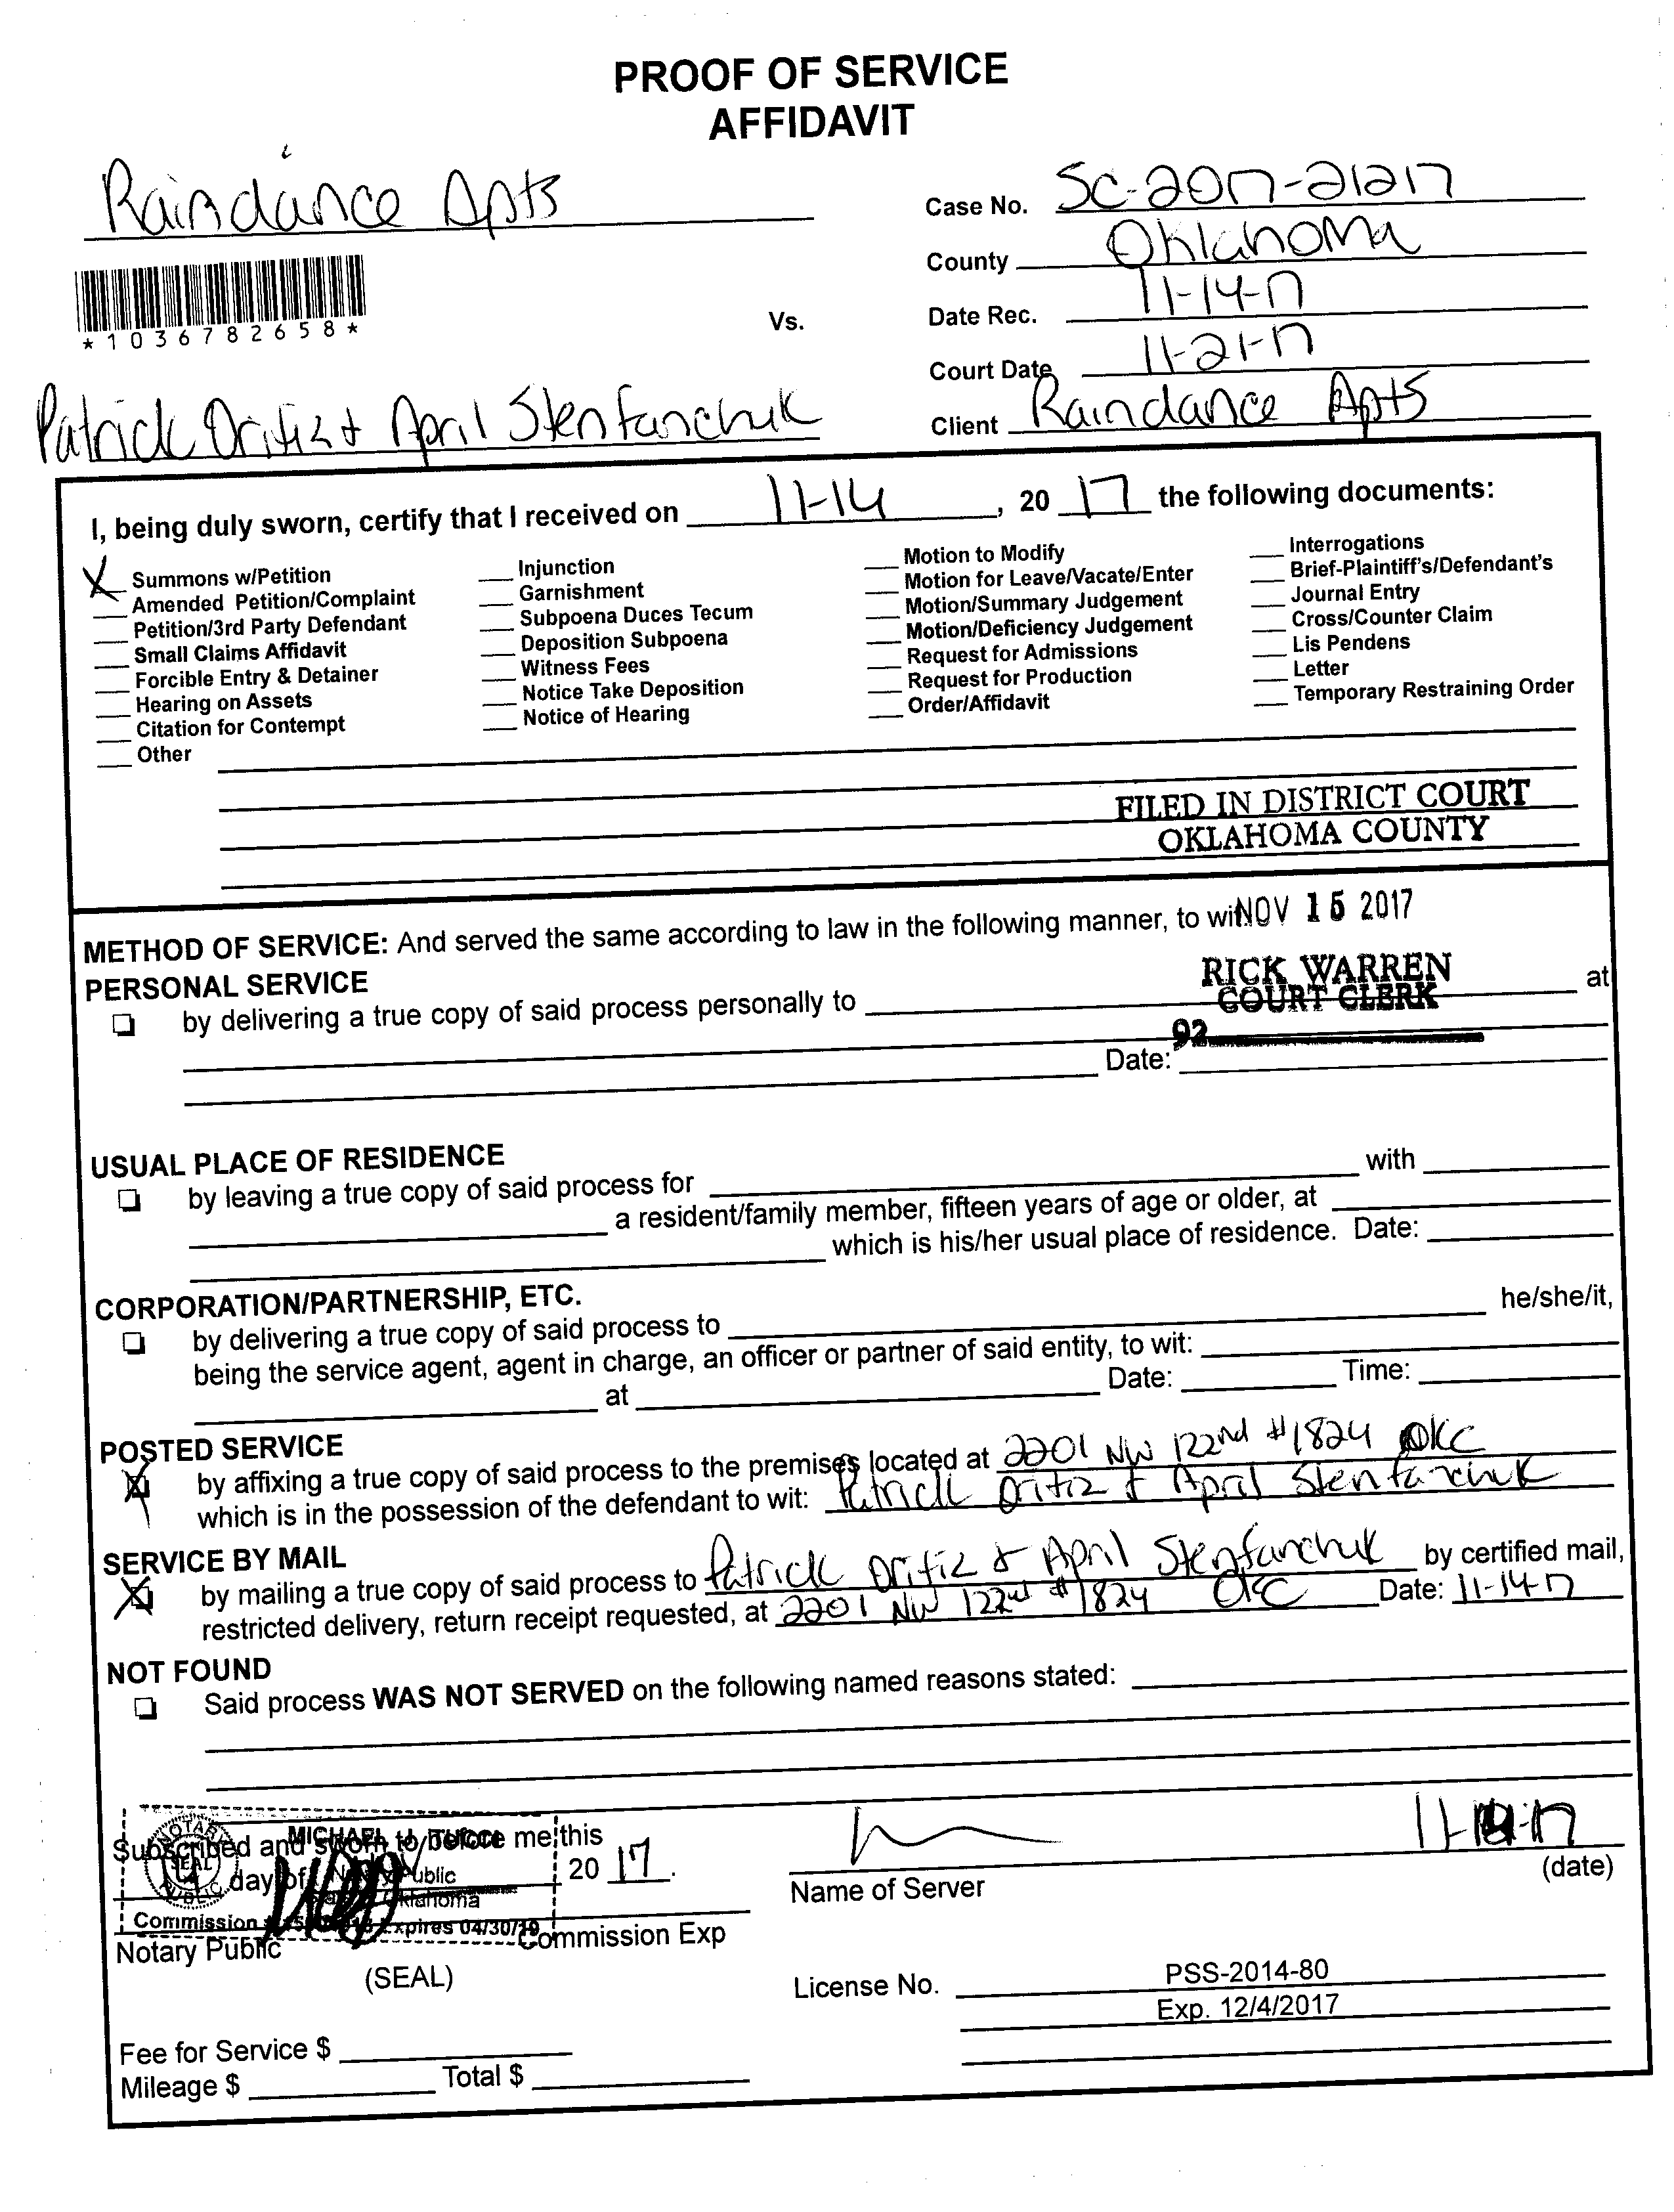 PROOF OF SERVICE
AFFIDAVIT
Raindance Apts
Case No. SC-2017-21217
County Oklahoma
*1036782658*
Vs.
Date Rec. 11-14-17
Court Date 11-21-17
Patrick Oritiz & April Stenfanchuk
Client Raindance Apts
I, being duly sworn, certify that I received on 11-14, 20 17 the following documents:
X Summons w/Petition
Amended Petition/Complaint
Petition/3rd Party Defendant
Small Claims Affidavit
Forcible Entry & Detainer
Hearing on Assets
Citation for Contempt
Other
Injunction
Garnishment
Subpoena Duces Tecum
Deposition Subpoena
Witness Fees
Notice Take Deposition
Notice of Hearing
Motion to Modify
Motion for Leave/Vacate/Enter
Motion/Summary Judgement
Motion/Deficiency Judgement
Request for Admissions
Request for Production
Order/Affidavit
Interrogations
Brief-Plaintiff's/Defendant's
Journal Entry
Cross/Counter Claim
Lis Pendens
Letter
Temporary Restraining Order
FILED IN DISTRICT COURT
OKLAHOMA COUNTY
METHOD OF SERVICE: And served the same according to law in the following manner, to wit:
NOV 15 2017
PERSONAL SERVICE
RICK WARREN
COURT CLERK
by delivering a true copy of said process personally to at
92
Date:
USUAL PLACE OF RESIDENCE
by leaving a true copy of said process for with
a resident/family member, fifteen years of age or older, at
which is his/her usual place of residence. Date:
CORPORATION/PARTNERSHIP, ETC.
by delivering a true copy of said process to he/she/it,
being the service agent, agent in charge, an officer or partner of said entity, to wit:
at Date: Time:
POSTED SERVICE
by affixing a true copy of said process to the premises located at 2201 NW 122nd #1824 OKC
which is in the possession of the defendant to wit: Patrick Oritiz & April Stenfanchuk
SERVICE BY MAIL
by mailing a true copy of said process to Patrick Oritiz & April Stenfanchuk by certified mail,
restricted delivery, return receipt requested, at 2201 NW 122nd #1824 OKC Date: 11-14-17
NOT FOUND
Said process WAS NOT SERVED on the following named reasons stated:
Subscribed and sworn to before me this
MICHAEL J. TUCCI
day of 20 17.
NOTARY
SEAL
PUBLIC
Notary Public
Oklahoma
Commission Expires 04/30/19
Notary Public
Commission Exp
(SEAL)
Name of Server
(date)
License No. PSS-2014-80
Exp. 12/4/2017
Fee for Service $
Mileage $ Total $